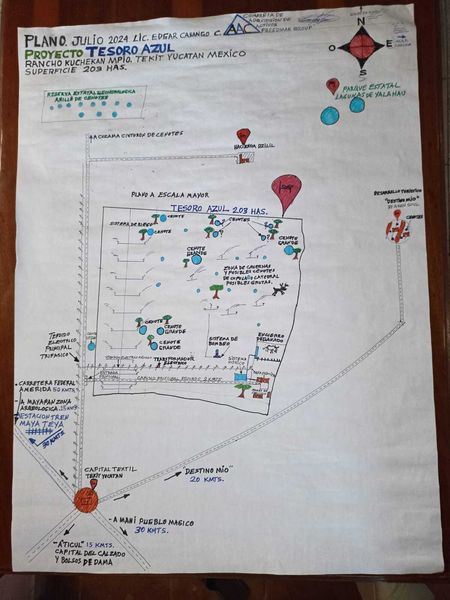 PLANO. JULIO 2024 LIC. EDGAR CASANGO C.
AAC
COMPAÑIA DE
ADQUISICION DE
ACTIVOS
FREEDMAN GROUP
PROYECTO TESORO AZUL
RANCHO KUCHEKAN MPIO. TEKIT YUCATAN MEXICO
SUPERFICIE 203 HAS.
N
O
E
S
RESERVA ESTATAL GEOHIDROLOGICA
ANILLO DE CENOTES
PARQUE ESTATAL
LAGUNAS DE YALAHAU
A CORAMA CINTURON DE CENOTES
HACIENDA
PLANO A ESCALA MAYOR
TESORO AZUL 203 HAS.
DESARROLLO TURISTICO
"DESTINO MIO"
CENOTES
SISTEMA DE RIEGO
CENOTE
CENOTE
CENOTES
CENOTE
GRANDE
CENOTE
GRANDE
ZONA DE CAVERNAS
Y POSIBLES CENOTES
POSIBLES GRUTAS.
CENOTE
CENOTE
GRANDE
CENOTE
GRANDE
SISTEMA DE
BOMBEO
ENCIERRO
DE GANADO
TENDIDO
ELECTRICO
PRINCIPAL
TRIFASICO
TRANSFORMADOR
ELECTRICO
SISTEMA
ENTRADA
2 KMTS.
CARRETERA FEDERAL
A MERIDA 50 KMTS.
- A MAYAPAN ZONA
ARQUEOLOGICA 15 KMTS.
ESTACION TREN
MAYA TEYA
30 KMTS.
CAPITAL TEXTIL
TEKIT YUCATAN
DESTINO MIO"
20 KMTS.
- A MANI PUEBLO MAGICO
30 KMTS.
- A "TICUL" 15 KMTS.
CAPITAL DEL CALZADO
Y BOLSOS DE DAMA